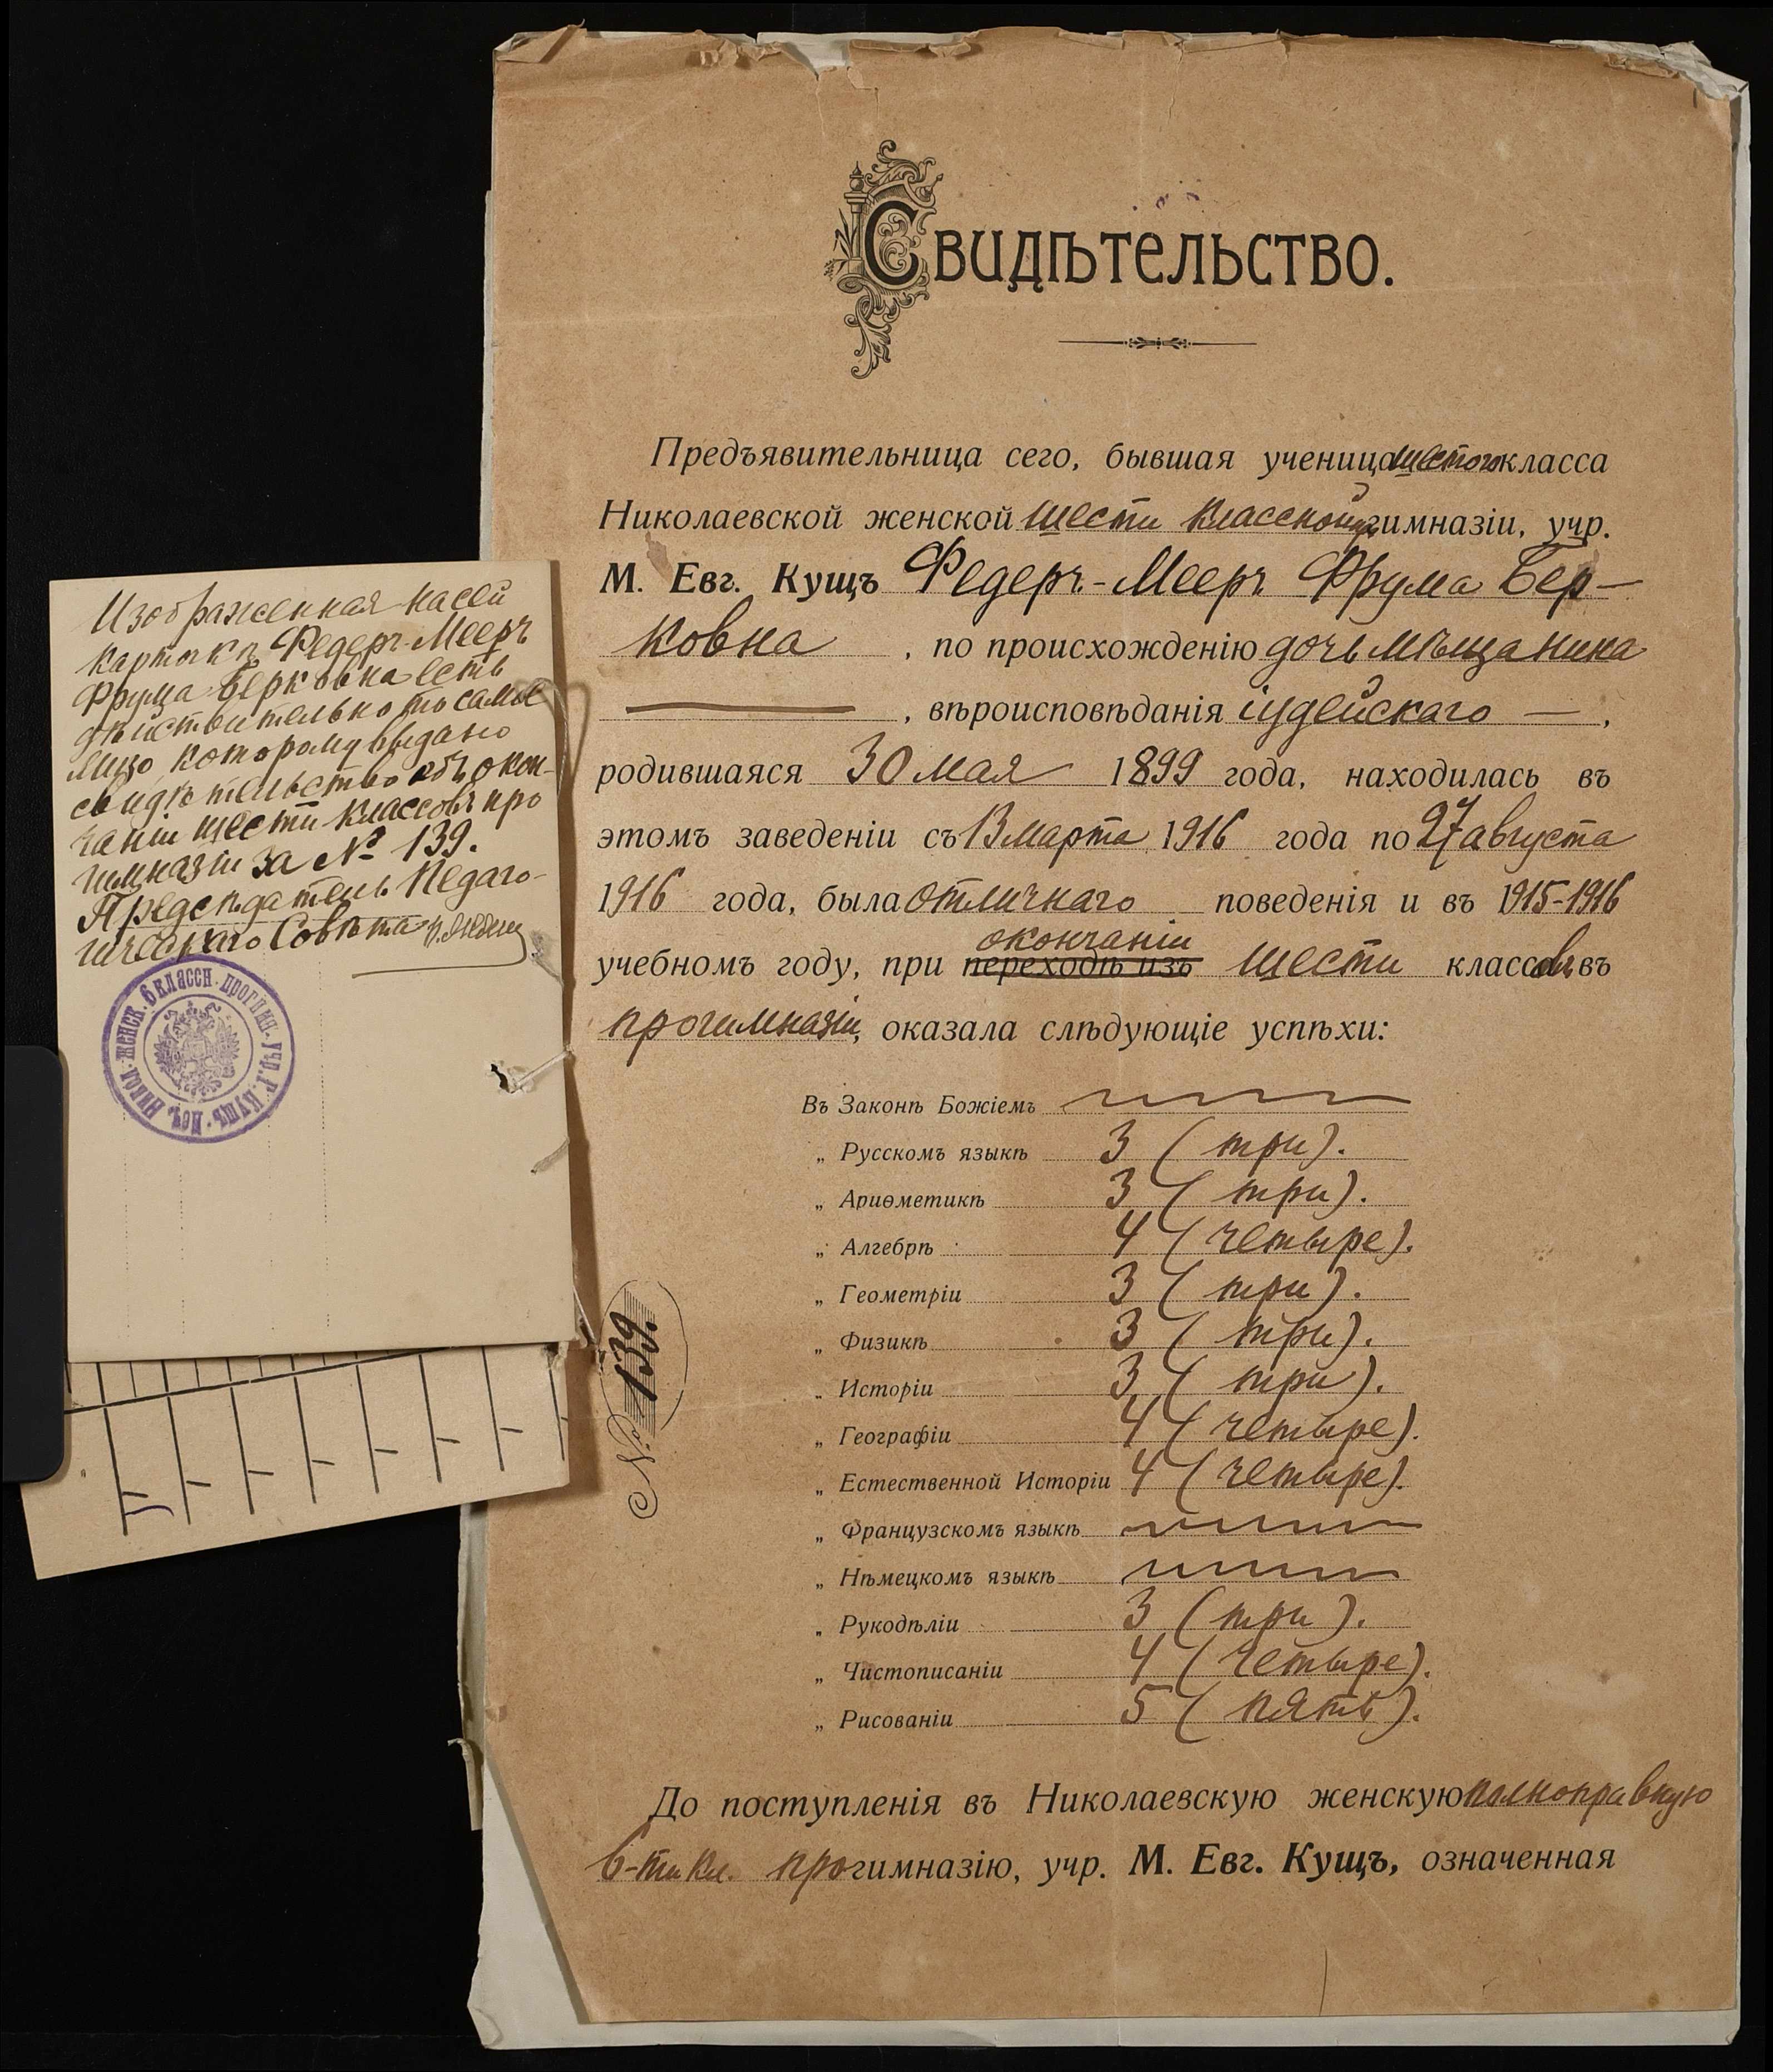 Свидѣтельство.
Предъявительница сего, бывшая ученица шестого класса
Николаевской женской шести классной прогимназіи, учр.
М. Евг. Кущъ Федеръ-Мееръ Фрума Бер-
ковна, по происхожденію дочь мѣщанина
, вѣроисповѣданія іудейскаго —,
родившаяся 30 мая 1899 года, находилась въ
этомъ заведеніи съ 13 марта 1916 года по 27 августа
1916 года, была отличнаго поведенія и въ 1915-1916
окончаніи
учебномъ году, при переходѣ изъ шести классовъ въ
прогимназіи, оказала слѣдующіе успѣхи:
Въ Законѣ Божіемъ
„ Русскомъ языкѣ 3 (три).
„ Ариѳметикѣ 3 (три).
„ Алгебрѣ 4 (четыре).
„ Геометріи 3 (три).
„ Физикѣ 3 (три).
„ Исторіи 3 (три).
„ Географіи 4 (четыре).
„ Естественной Исторіи 4 (четыре).
„ Французскомъ языкѣ
„ Нѣмецкомъ языкѣ
„ Рукодѣліи 3 (три).
„ Чистописаніи 4 (четыре).
„ Рисованіи 5 (пять).
№ 139.
До поступленія въ Николаевскую женскую полноправную
6-ти кл. прогимназію, учр. М. Евг. Кущъ, означенная
Изображенная на сей
карточкѣ Федеръ-Мееръ
Фрума Берковна есть
дѣйствительно то самое
лицо, которому выдано
свидѣтельство объ окон-
чаніи шести классовъ про
гимназіи за № 139.
Предсѣдатель Педаго-
гическаго Совѣта
Никол. женск. 6 классн. прогимн. учр. Г. Кущъ.